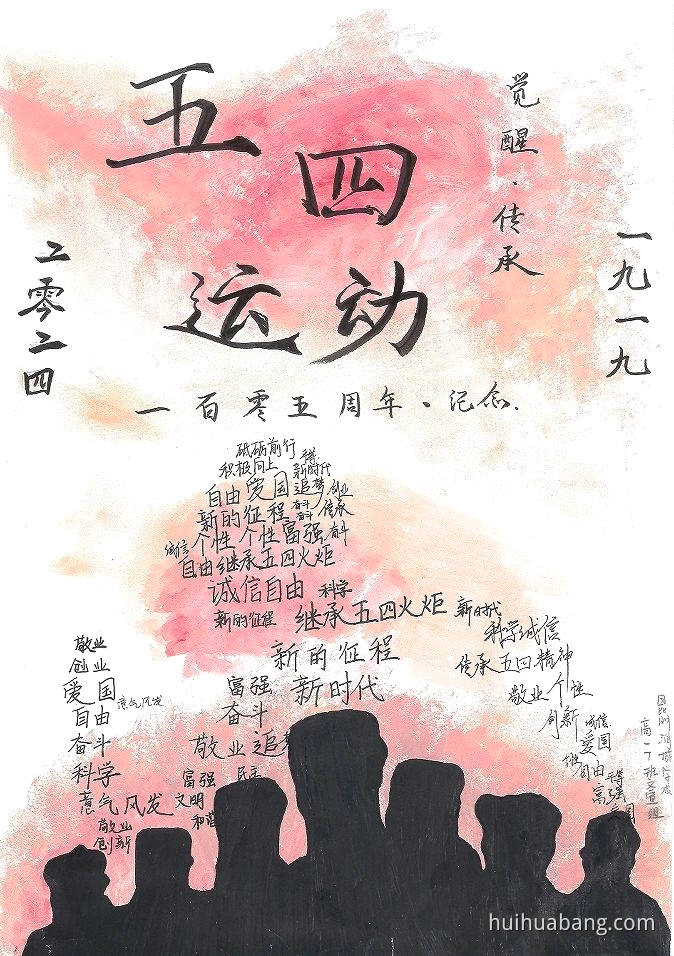 五四
运动
觉醒·传承
一九一九
二零二四
一百零五周年·纪念.
砥砺前行
积极向上
平等
新时代
自由爱国追梦
创业
新的征程
奋斗
奋斗
传承
诚信
个性个性富强
奋斗
自由继承五四火炬
诚信自由
科学
新的征程
继承五四火炬
新时代
科学诚信
新的征程
传承五四精神
敬业
创业
爱国
自由
意气风发
奋斗
科学
意气风发
敬业
创新
富强
新时代
奋斗
敬业
富强
民主
文明
和谐
敬业个性
创新
诚信
爱国
自由
平等
富强
爱国
huihuabang.com